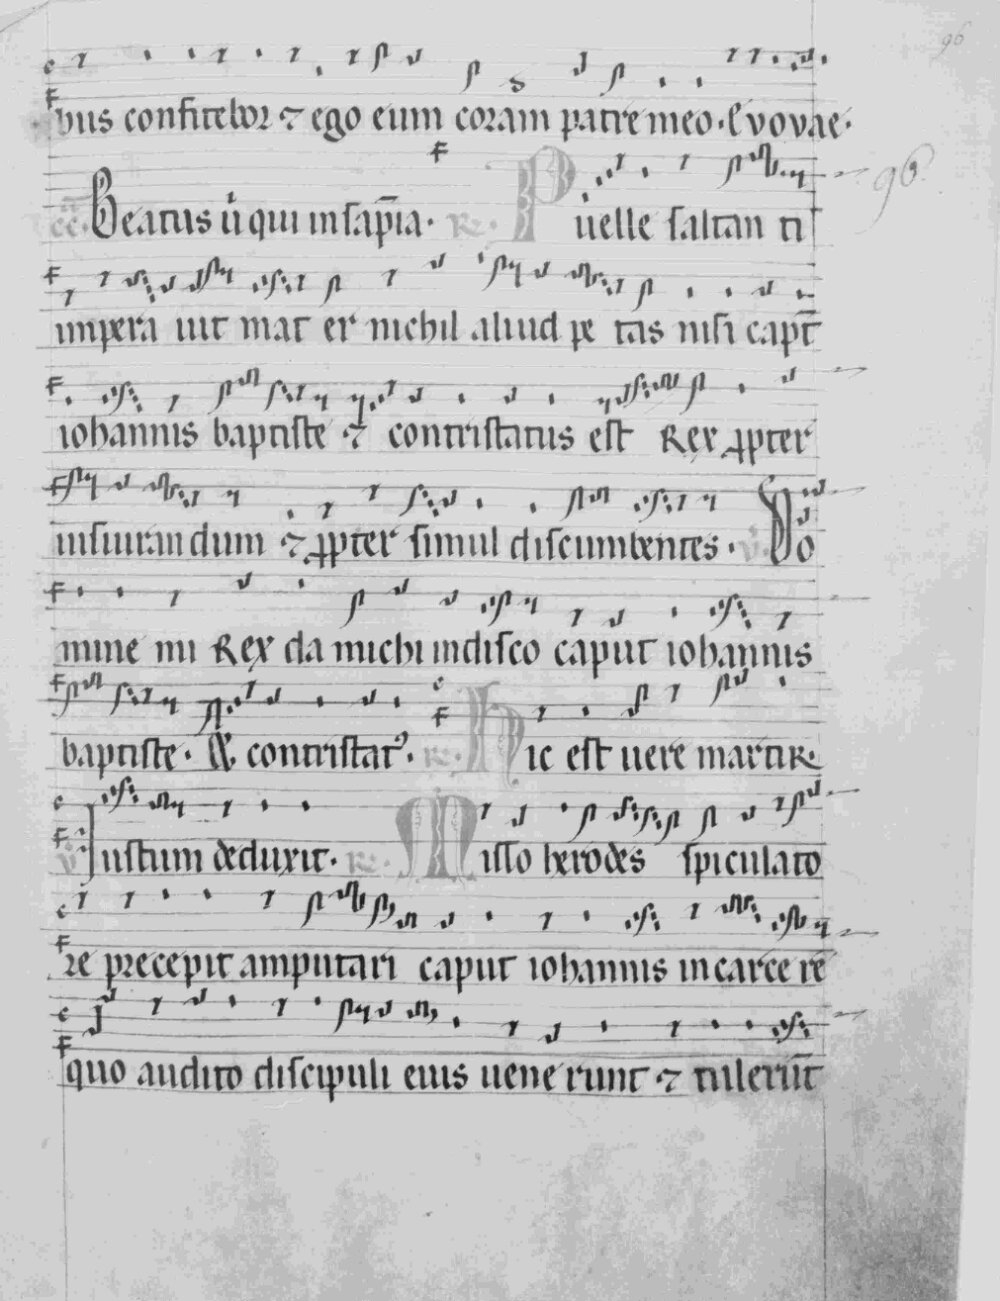 96
bus confitebor ⁊ ego eum coram patre meo · Evovae ·
96
Beatus u̇ qui in sap̄ia · R̷. Puelle saltan ti
impera uit mat er nichil aliud pe tas nisi capt̄
iohannis baptiste ⁊ contristatus est Rex ꝓpter
iusiuran dum ⁊ ꝓpter simul discumbentes · V̷. Do
mine mi Rex da michi indisco caput iohannis
baptiste · Et contristat᾽ · R̷. Hic est uere martiR
V̷. Iustum deduxit · R̷. Misso herodes spiculato
re precepit amputari caput iohannis in carce re
quo audito discipuli eius uene runt ⁊ tulerūt